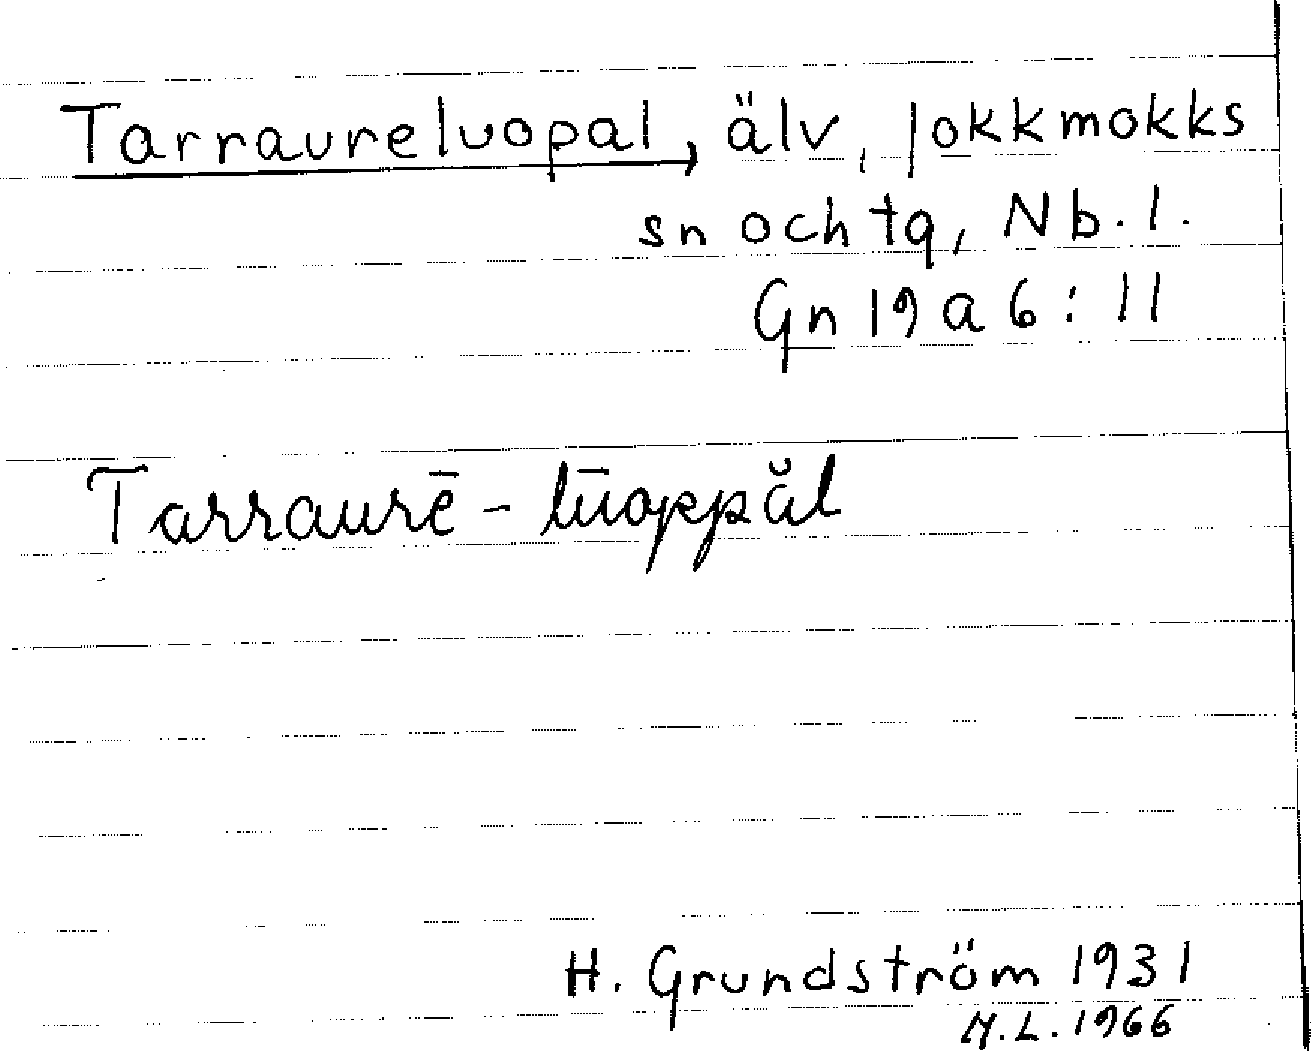 Tarraureluopal, älv, Jokkmokks
sn och tg, Nb. l.
Gn 19 a 6 : 11
Tarraurē - lūoppăl
H. Grundström 1931
N.L. 1966